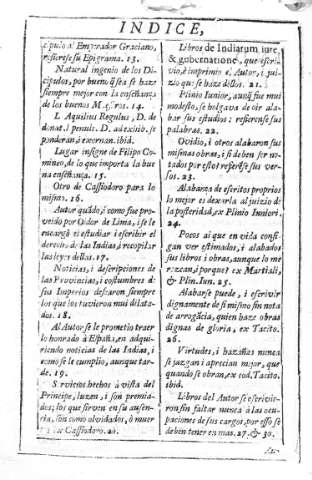 INDICE,
pulo al Emperador Graciano,
refierese su Epigrama. 13.
Natural ingenio de los Dicipulos,
por bueno q̃ sea se haze
siempre mejor con la enseñança
de los buenos Maestros. 14.
L. Aquilius Regulus, D. de
donat. l. penult. D. adexhib. se
ponderan, i exornan. ibid.
Lugar insigne de Filipo Comineo,
de lo que importa la buena
enseñança. 15.
Otro de Cassiodoro para lo
mismo. 16.
Autor quãdo, i como fue proveido
por Oidor de Lima, i se le
encargò el estudiar i escribir el
derecho de las Indias, i recopilar
las leyes dellas. 17.
Noticias, i descripciones de
las Provincias, i costumbres de
sus Imperios dessearon siempre
los que los tuvieron mui dilatados.
18.
Al Autor se le prometio traer
lo honrado à España, en adquiriendo
noticias de las Indias, i
como se le cumplio, aunque tarde.
19.
Servicios hechos à vista del
Principe, luzen, i son premiados;
los que sirven en su ausencia,
son como olvidados, ò muertos
ex Cassiodoro. 20.
Libros de Indiarum iure,
& gubernatione, que escrivio,
è imprimio el Autor, i juizio
que se haze dellos. 21.
Plinio Iunior, aunq̃ fue mui
modesto, se holgava de oir alabar
sus estudios: refierense sus
palabras. 22.
Ovidio, i otros alabaron sus
mismas obras, i si deben ser notados
por esto? refierẽse sus versos.
23.
Alabança de escritos proprios
lo mejor es dexarla al juizio de
la posteridad, ex Plinio Iuniori.
24.
Pocos ai que en vida consigan
ver estimados, i alabados
sus libros i obras, aunque lo merezcan,
i porque? ex Martiali,
& Plin. Iun. 25.
Alabarse puede, i escrivir
dignamente de si mismo sin nota
de arrogãcia, quien haze obras
dignas de gloria, ex Tacito.
26.
Virtudes, i hazañas nunca
se juzgan i aprecian mejor, que
quando se obran, ex eod. Tacito.
ibid.
Libros del Autor se escrivieron
sin faltar nunca à las ocupaciones
de sus cargos, por esso se
deben tener en mas. 27. & 30.